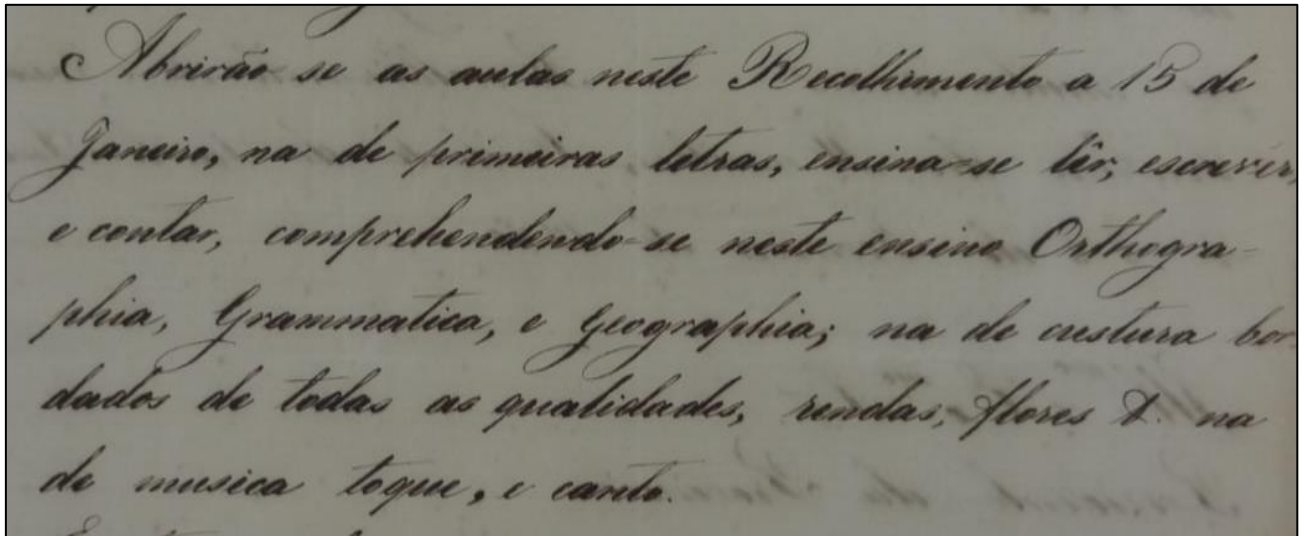 Abrirão se as aulas neste Recolhimento a 15 de
Janeiro, na de primeiras letras, ensina-se lêr, escrever,
e contar, comprehendendo-se neste ensino Orthogra-
phia, Grammatica, e Geographia; na de custura bor
dados de todas as qualidades, rendas, flores &. na
de musica toque, e canto.